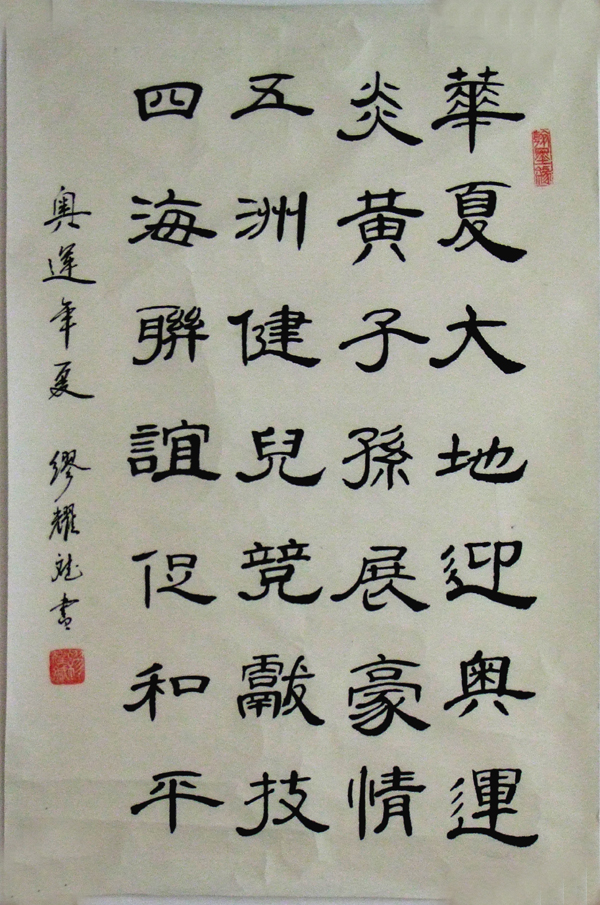 華夏大地迎奥運
炎黃子孫展豪情
五洲健兒競獻技
四海聯誼促和平
奥運年夏 繆耀
書